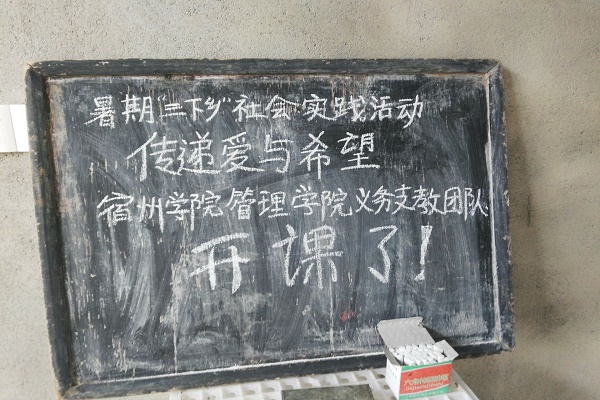 暑期“三下乡”社会实践活动
传递爱与希望
宿州学院管理学院义务支教团队
开课了!